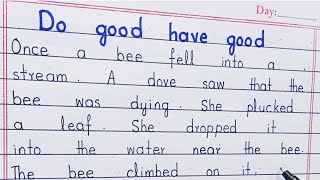 Day:
Do good have good
Once a bee fell into a
stream. A dove saw that the
bee was dying. She plucked
a leaf. She dropped it
into the water near the bee.
The bee climbed on it.